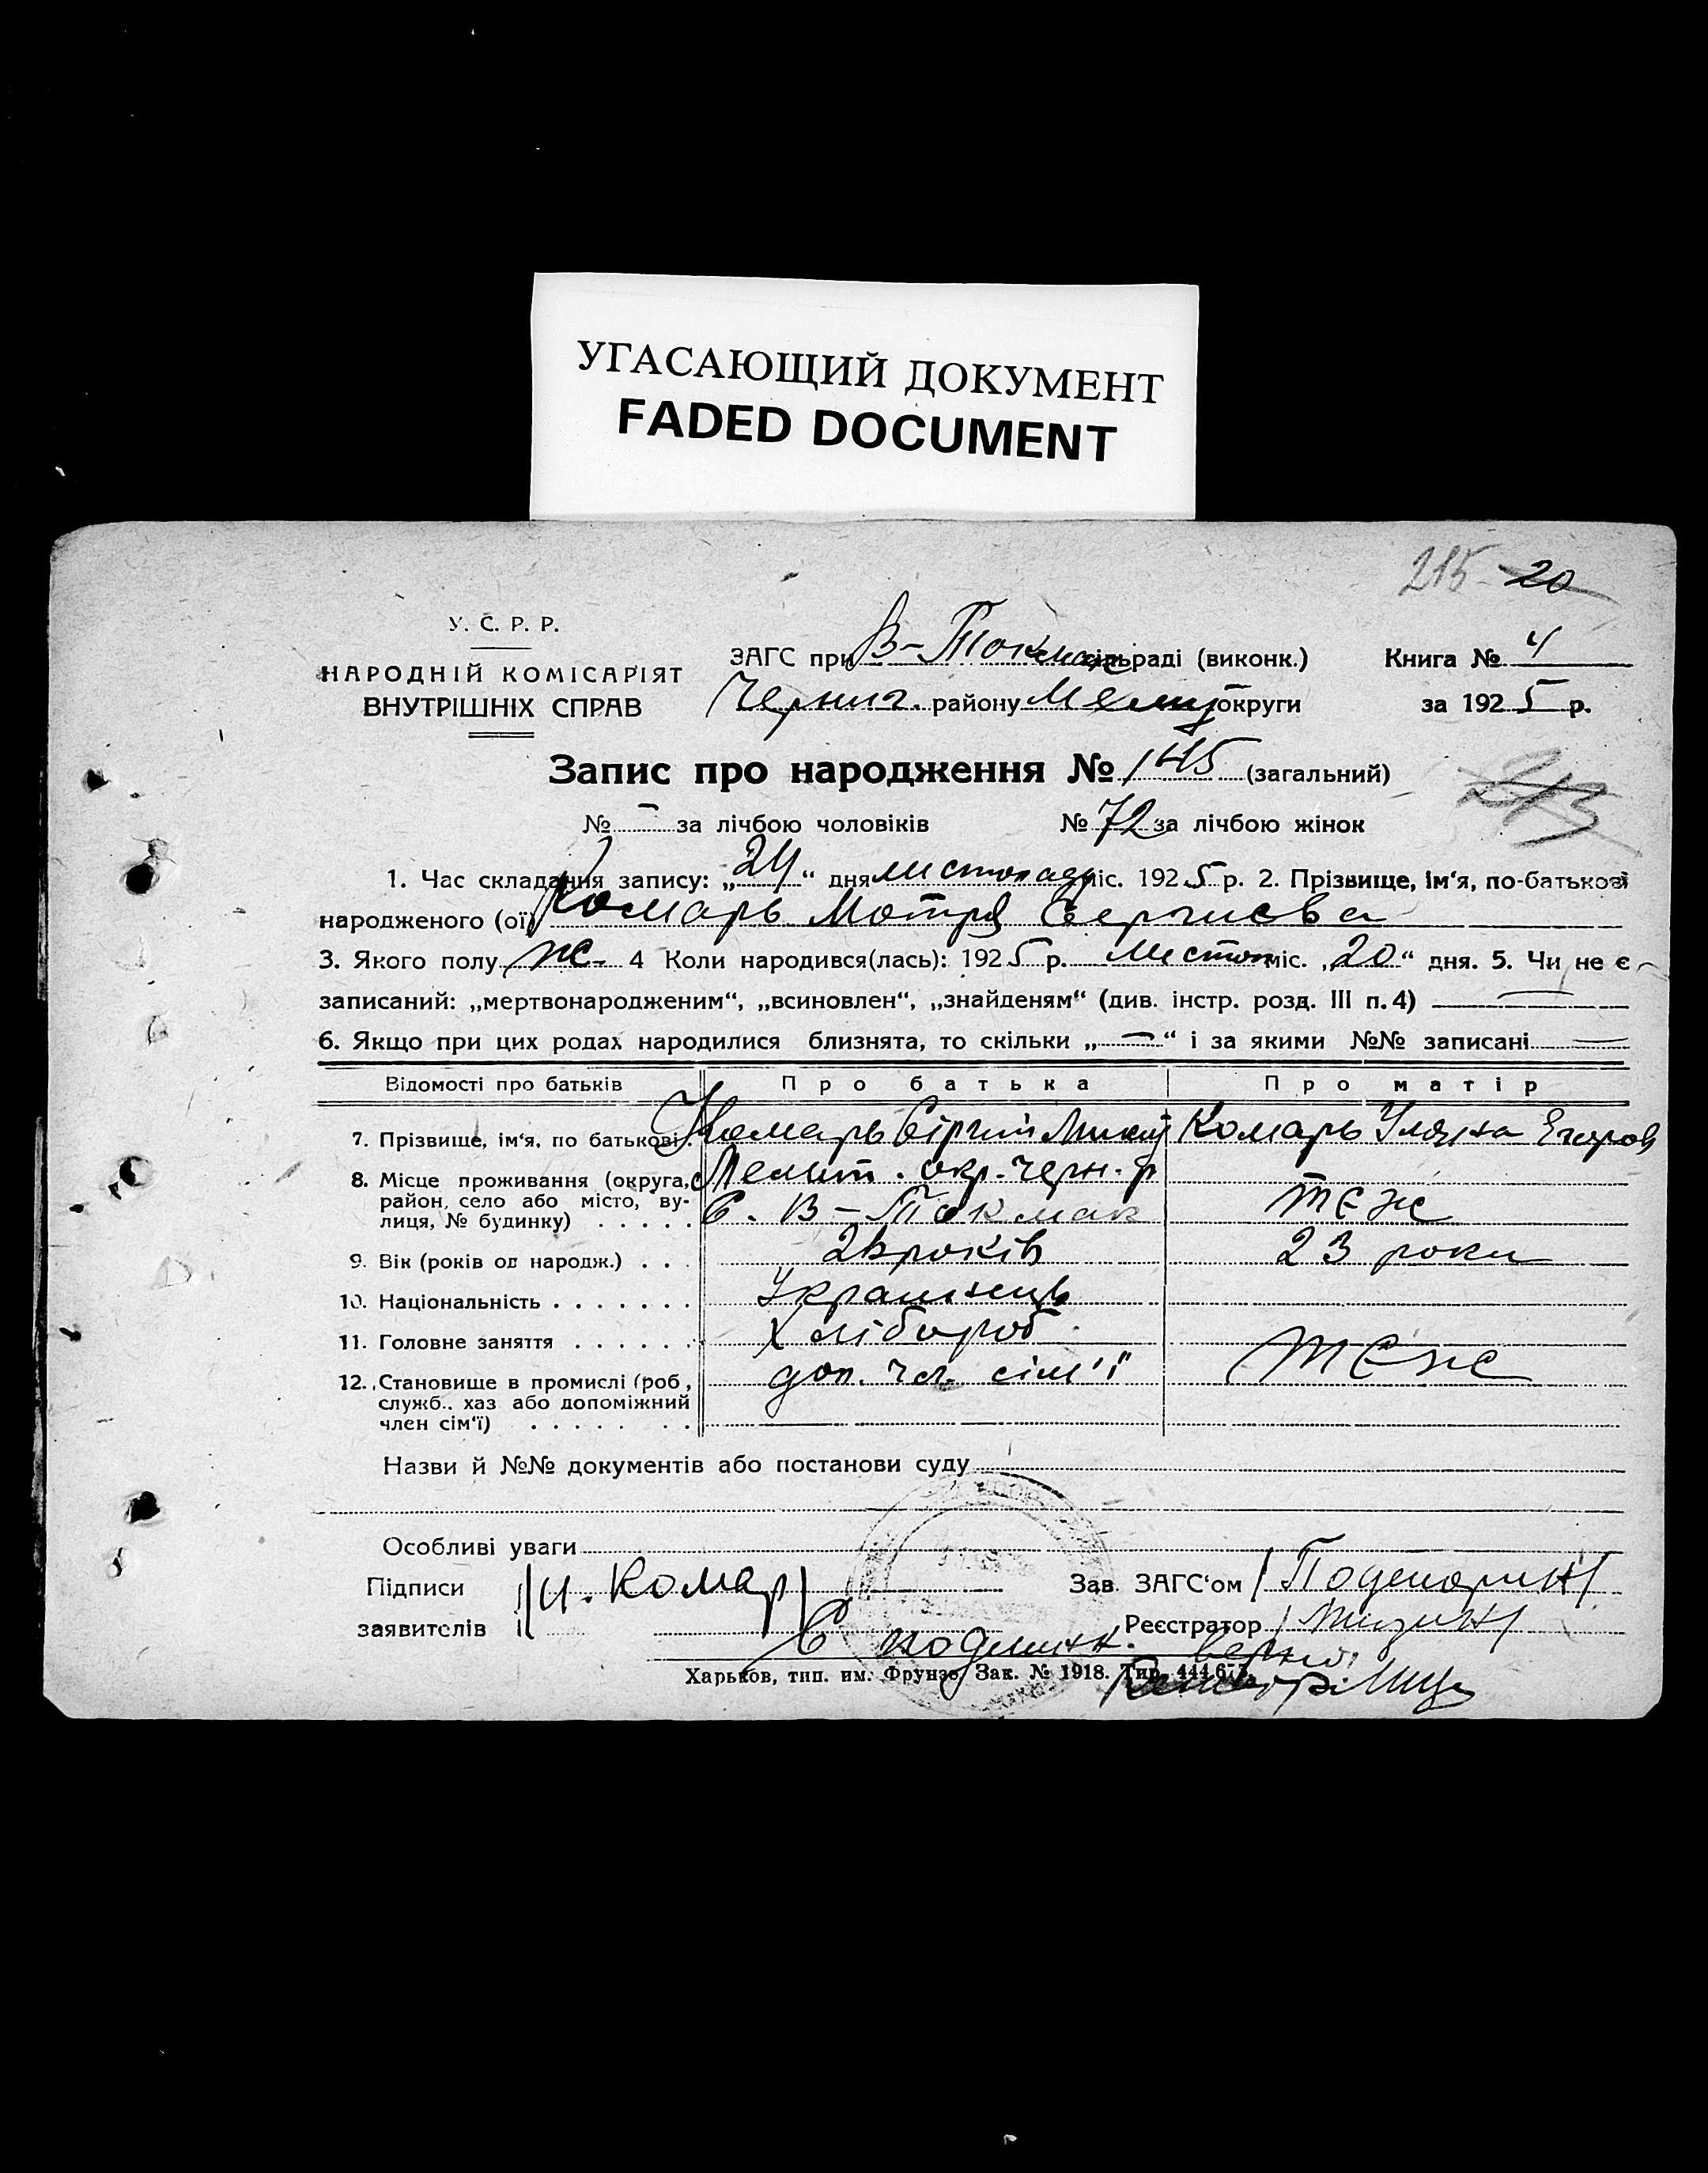 УГАСАЮЩИЙ ДОКУМЕНТ
FADED DOCUMENT
215 20
У. С. Р. Р.
НАРОДНІЙ КОМІСАРІЯТ
ВНУТРІШНІХ СПРАВ
ЗАГС при В-Токмак сільраді (виконк.)
Черниг. району Мелит округи
Книга № 4
за 1925 р.
Запис про народження № 145 (загальний)
213
№ - за лічбою чоловіків № 72 за лічбою жінок
1. Час складання запису: „24“ дня листопаду міс. 1925 р. 2. Прізвище, ім‘я, по-батькові
народженого (ої) Комарь Мотря Сергиєва
3. Якого полу ж. 4 Коли народився(лась): 1925 р. листоп міс. „20“ дня. 5. Чи не є
записаний: „мертвонародженим“, „всиновлен“, „знайденям“ (див. інстр. розд. III п. 4) —
6. Якщо при цих родах народилися близнята, то скільки „—“ і за якими №№ записані —
Відомості про батьків Про батька Про матір
7. Прізвище, ім‘я, по батькові. Комарь Сіргий Микит Комарь Уляна Егоров
8. Місце проживання (округа, район, село або місто, вулиця, № будинку) . . . . . Мелит. окр. Черн. р
С. В-Токмак теж
9. Вік (років од народж.) . . . років 23 роки
10. Національність . . . . . . . Українець
11. Головне заняття . . . . . . Хлібороб
12. Становище в промислі (роб., служб., хаз або допоміжний член сім‘ї) . . . . . . . доп. чл. сім'ї теж
Назви й №№ документів або постанови суду
Особливі уваги
Підписи
заявителів
И. Комар
Зав. ЗАГС‘ом
Реєстратор
С подлинн. верно:
Харьков, тип. им. Фрунзе, Зак. № 1918. Тир. 444.673.